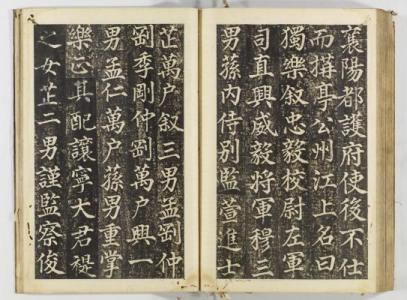 襄陽都護府使後不仕
而構亭公州江上名曰
獨樂叙忠毅校尉左軍
司直興威毅將軍穆三
男蓀内侍別監萱進士
芷萬户叙三男孟剛仲
剛季剛仲剛萬户興一
男孟仁萬户蓀男重掌
樂正其配讓寧大君禔
之女芷二男謹監察俊